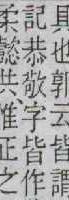 具也郭云皆謂
記恭敬字皆作
柔懿共、惟正之